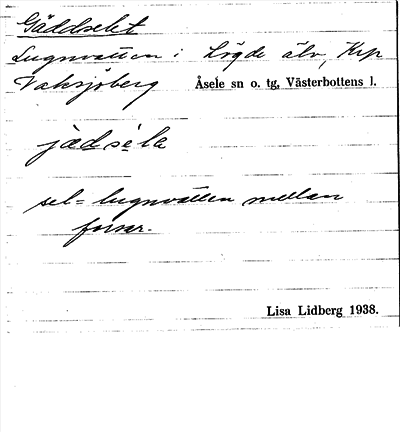 Gäddselet
Lugnvatten i Lögde älv, Krp
Vaksjöberg Åsele sn o. tg, Västerbottens l.
jädsela
sel = lugnvatten mellan
forsar.
Lisa Lidberg 1938.